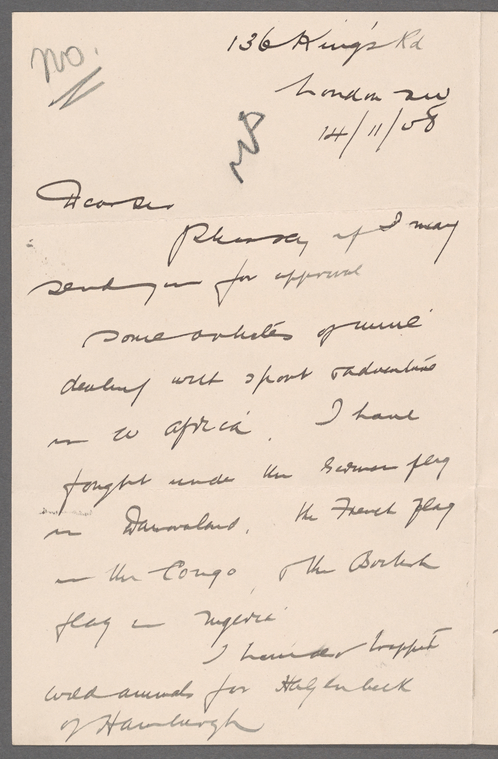 no.
136 King's Rd
London SW
14/11/08
Dear Sir
Please say if I may
send you for approval
some articles of mine
dealing with sport & adventure
in W Africa. I have
fought under the German flag
in Damaraland, the French flag
in the Congo, & the British
flag in Nigeria
I have trapped
wild animals for Hagenbeck
of Hamburgh